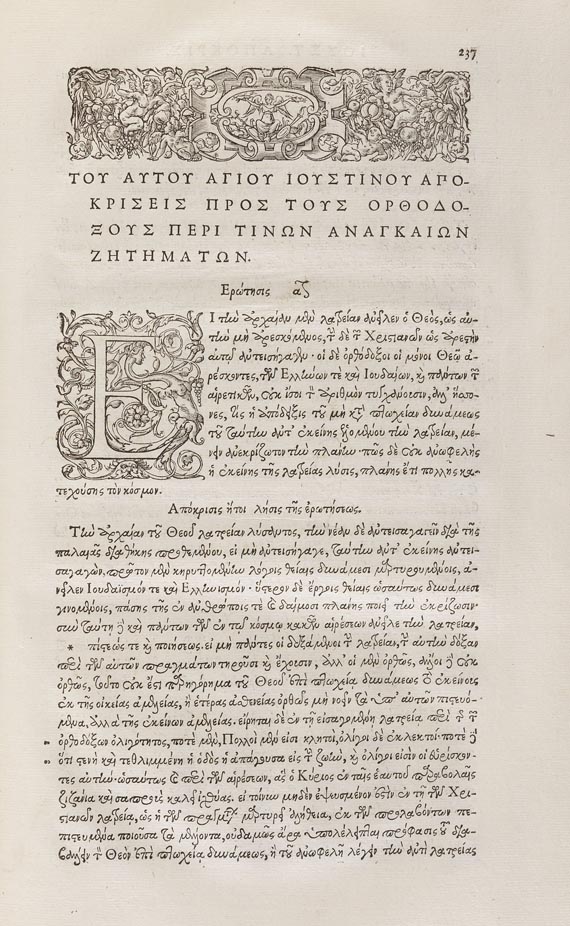 237
ΤΟΥ ΑΥΤΟΥ ΑΓΙΟΥ ΙΟΥΣΤΙΝΟΥ ΑΠΟ-
ΚΡΙΣΕΙΣ ΠΡΟΣ ΤΟΥΣ ΟΡΘΟΔΟ-
ΞΟΥΣ ΠΕΡΙ ΤΙΝΩΝ ΑΝΑΓΚΑΙΩΝ
ΖΗΤΗΜΑΤΩΝ.
Ερώτησις
Ε
Ι τὴν ἀρχαίαν μὲν λατρείαν ἀνεῖλεν ὁ Θεὸς, ὡς αὐ-
τῷ μὴ ἀρεσκόμενος, τὴν δὲ τῶν Χριστιανῶν ὡς ἀρεστὴν
αὐτῷ ἀντεισήγαγεν· οἱ δὲ ὀρθόδοξοι οἱ μόνοι Θεῷ ἀ-
ρέσκοντες, τῶν Ελλήνων τε καὶ Ιουδαίων, καὶ πάντων τῶν
αἱρετικῶν, οὐκ ἴσοι τὸν ἀριθμὸν τυγχάνουσιν, ἀλλ' ἥττο-
νες, τίς ἡ ἀπόδειξις τοῦ μὴ κατὰ πτωχείαν δυνάμεως
τοῦ ταύτην ἀντ' ἐκείνης
τὴν λατρείαν, μέ-
νειν ἀνεκρίζωτον τὴν πλάνην· πῶς δὲ οὐκ ἀνωφελὴς
ἡ ἐκείνης τῆς λατρείας λύσις, πλάνης ἔτι πολλῆς κα-
τεχούσης τὸν κόσμον.
Απόκρισις ἤτοι λῆσις τῆς ἐρωτήσεως.
Τὴν ἀρχαίαν τοῦ Θεοῦ λατρείαν λύσαντος, τὴν νέαν δὲ ἀντεισαγαγεῖν διὰ τῆς
παλαιᾶς διαθήκης προθεμένου, εἰ μὴ ἀντεισήγαγε, ταύτην ἀντ' ἐκείνης ἀντει-
σαγαγὼν, πρῶτον μὲν κηρυττομένην λόγοις θείαις δυνάμεσι μαρτυρουμένοις, ἀ-
νεῖλεν Ιουδαϊσμόν τε καὶ Ελληνισμόν· ὕστερον δὲ ἔργοις θείαις ὡσαύτως δυνάμεσι
γινομένοις, πάσης τῆς ἐν ἀνθρώποις τε καὶ δαίμοσι πλάνης ποιεῖ τὴν ἐκρίζωσιν·
σὺν ταύτῃ δὲ καὶ πάντων τῶν ἐν τῷ κόσμῳ κακῶν αἱρέσεων ἀνεῖλε τὴν λατρείαν,
* πίστεώς τε καὶ ποιήσεως. εἰ μὴ πάντες οἱ δεξάμενοι τὴν λατρείαν, τὴν αὐτὴν δόξαν
περὶ τῶν αὐτῶν πραγμάτων τηροῦσι καὶ ἔχουσιν, ἀλλ' οἱ μὲν ὀρθῶς, ἄλλοι δὲ οὐκ
ὀρθῶς, τοῦτο οὐκ ἔστι κατηγόρημα τοῦ Θεοῦ ἐπὶ πτωχείᾳ δυνάμεως
ἐκ τῆς οἰκείας ἀμελείας, ἢ ἑτέρας ἀσθενείας ὀρθῶς μὴ νοεῖν τὰ ὑπ' αὐτῶν πιστευό-
μενα, ἀλλὰ τῆς ἐκείνων ἀμελείας. εἴρηται δὲ ἐν τῇ εἰσαγομένῃ λατρείᾳ περὶ τῆς τῶν
ὀρθοδόξων ὀλιγότητος, ποτὲ μὲν, Πολλοὶ μέν εἰσι κλητοὶ, ὀλίγοι δὲ ἐκλεκτοί· ποτὲ δὲ
ὅτι στενὴ καὶ τεθλιμμένη ἡ ὁδὸς ἡ ἀπάγουσα εἰς τὴν ζωὴν, καὶ ὀλίγοι εἰσὶν οἱ εὑρίσκον-
τες αὐτήν· ὡσαύτως καὶ περὶ τῶν αἱρέσεων, ἃς ὁ Κύριος ἐν ταῖς ἑαυτοῦ παραβολαῖς
ζιζάνια καὶ σαπροὺς καλεῖ ἰχθύας. εἰ τοίνυν μηδὲν ἐψευσμένον ἐστὶν ἐν τῇ τῶν Χρι-
στιανῶν λατρείᾳ, ὡς ἡ τῶν πραγμάτων μαρτυρεῖ ἀλήθεια, ἐκ τῶν προλαβόντων πε-
πιστευμένα ποιοῦσα τὰ μέλλοντα, οὐδαμῶς ἄρα ὑπολέλειπται πρόφασις τοῦ δια-
βάλλειν τὸν Θεὸν ἐπὶ πτωχείᾳ δυνάμεως, ἢ τοῦ ἀνωφελῆ λέγειν τὴν ἀντὶ λατρείας